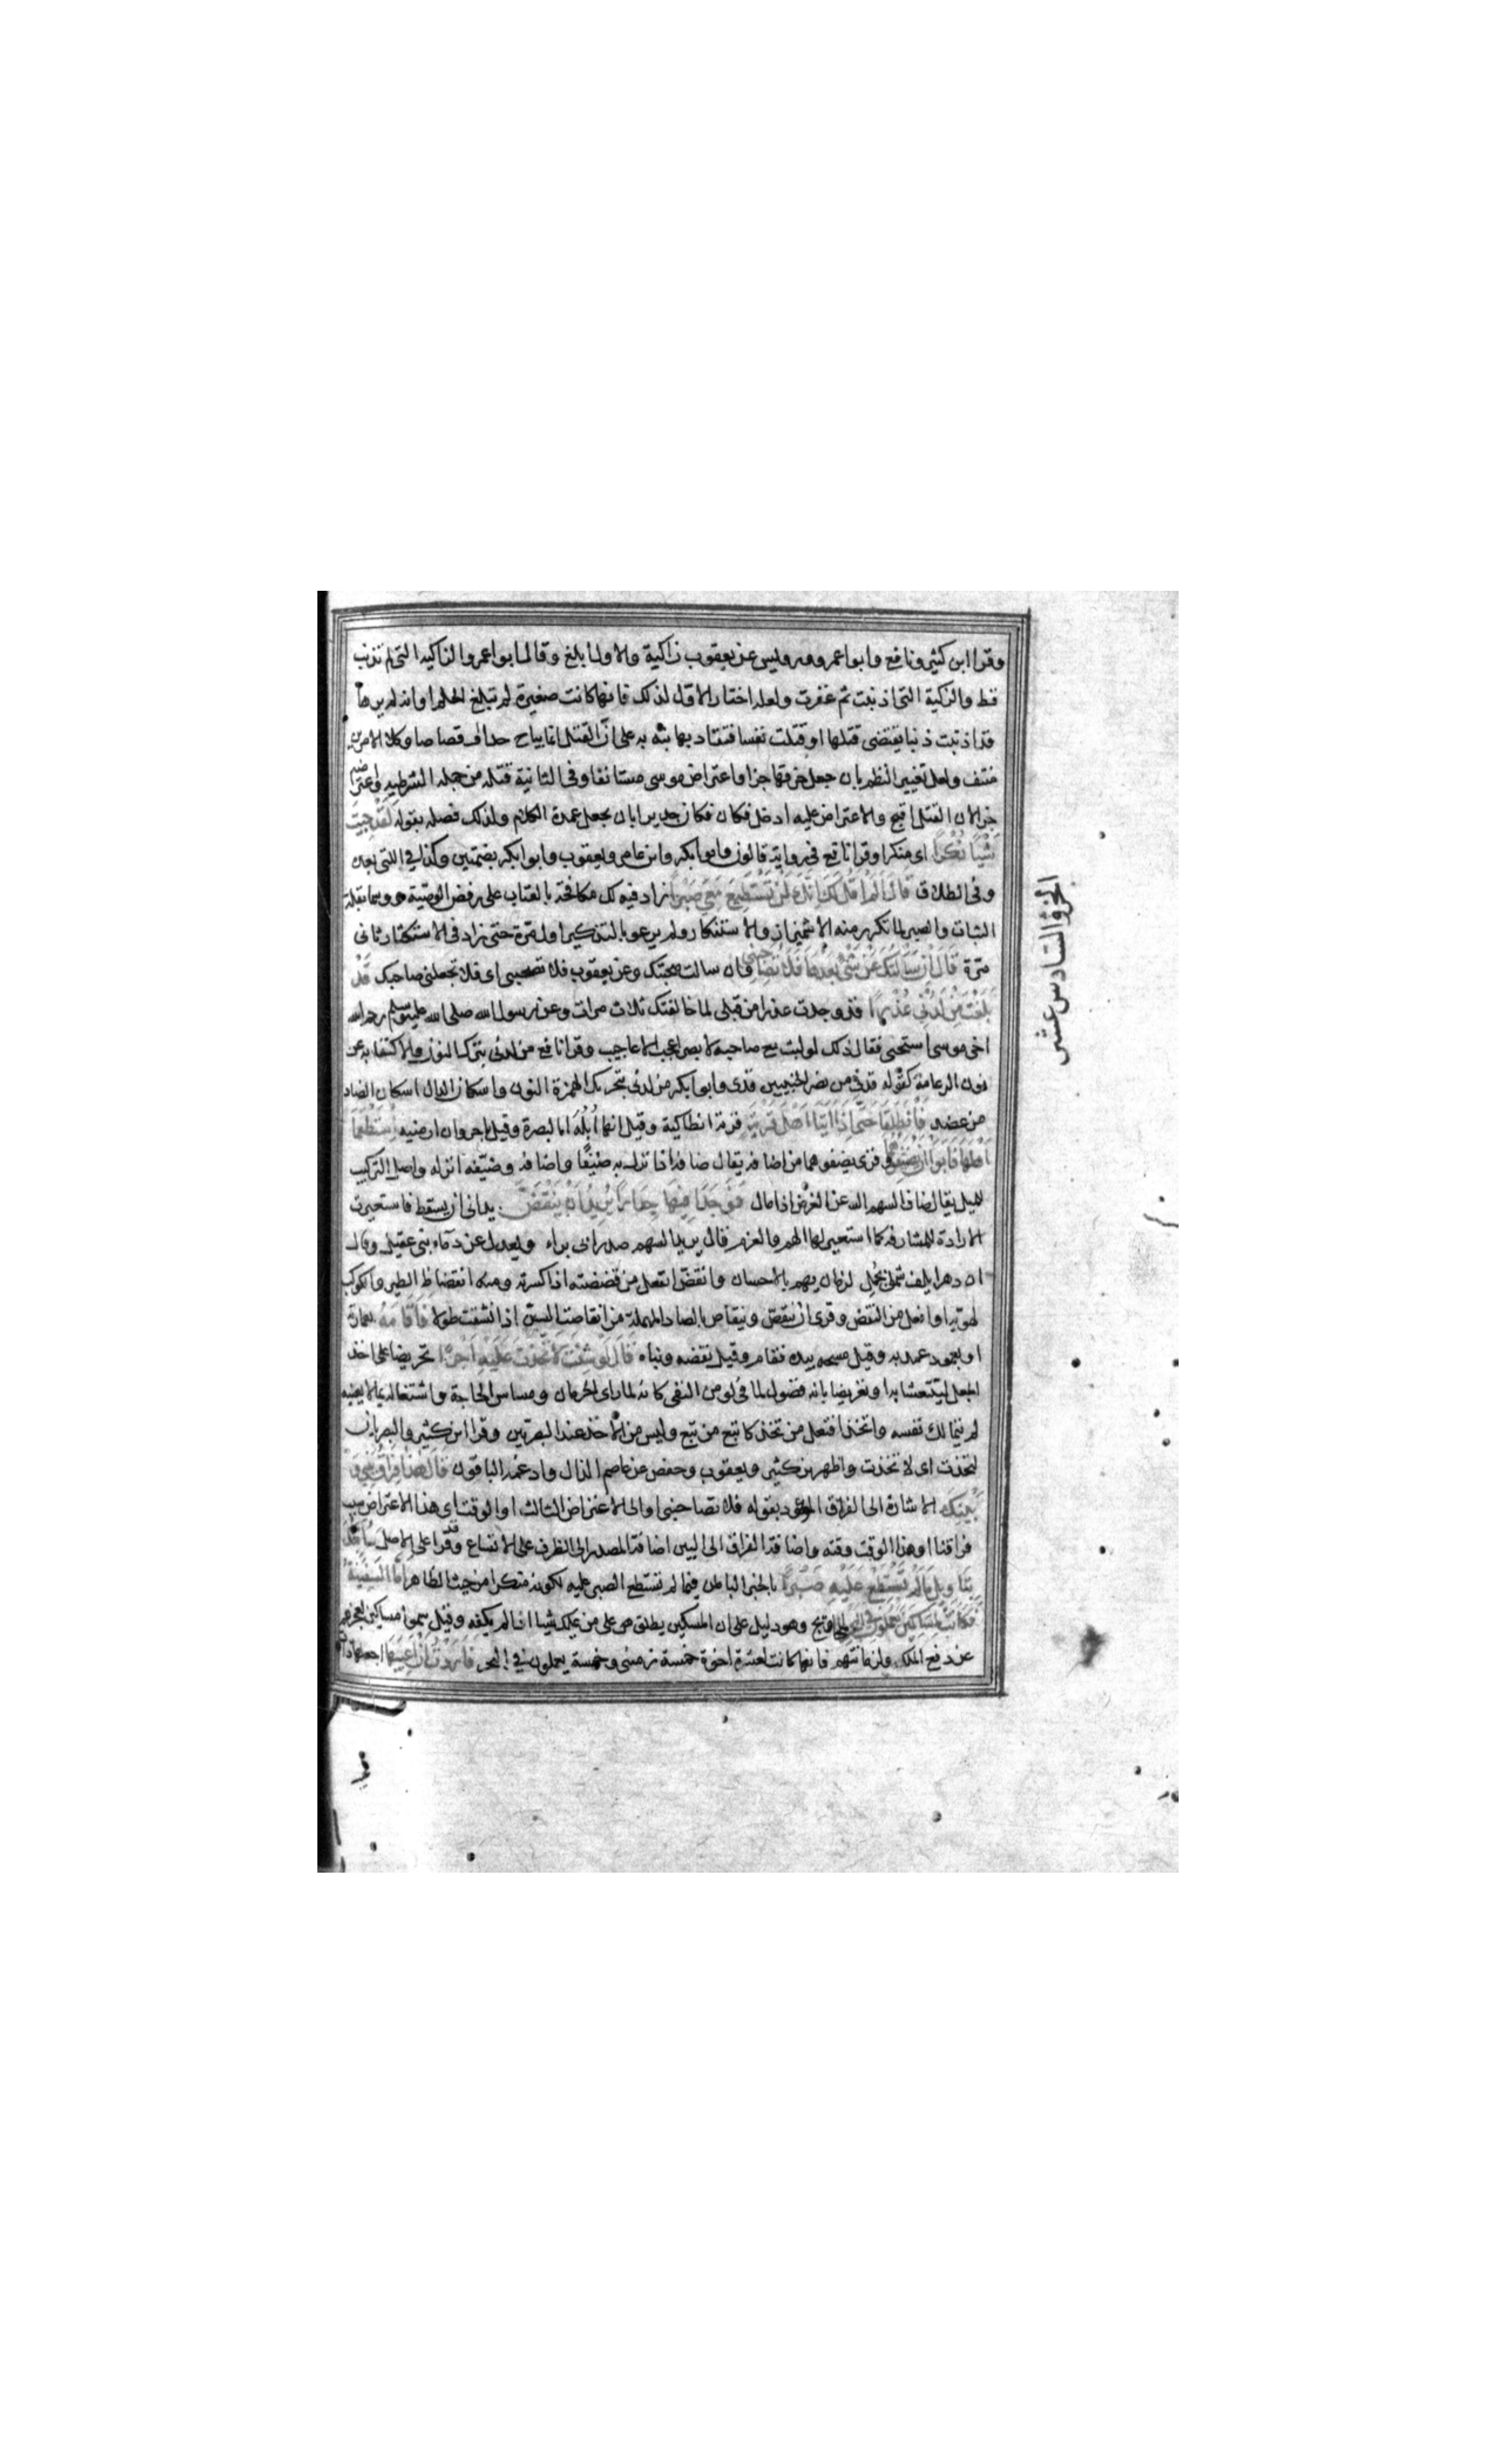 وقرا ابن كثير ونافع وابو عمرو ورويس عن يعقوب زاكية والاول ابلغ وقال ابو عمرو الزاكية التى لم تذنب
قط والزكية التى اذنبت ثم غفرت ولعله اختار الاول لذلك فانها كانت صغيرة لم تبلغ الحلم او انه لم يرها
قد اذنبت ذنبا يقتضى قتلها او قتلت نفسا فتقاد بها نبه به على ان القتل انما يباح حدا او قصاصا وكلا الامرين
منتف ولعل تغيير النظم بان جعل خرقها جزا واعتراض موسى مستانفا وفى الثانية قتله من جملة الشرطية واعتراضه
جزا لان القتل اقبح والاعتراض عليه ادخل فكان فكان جديرا بان يجعل عمدة الكلام ولذلك فصله بقوله لقد جيت
شَيْئًا نُكْرًا اى منكرا وقرا نافع فى رواية قالون وابو بكر وابن عامر ويعقوب وابو بكر بضمتين
وفى الطلاق قَالَ اَلَمْ اَقُلْ لَكَ اِنَّكَ لَنْ تَسْتَطِيعَ مَعِيَ صَبْرًا زاد فيه لك مكافحة بالعتاب على رفض الوصية ووسما بقلة
الثبات والصبر لما تكرر منه الاشمئزاز والاستنكار ولم يرعو بالتذكير اول مرة حتى زاد فى الاستنكار ثانى
مرة قَالَ اِنْ سَأَلْتُكَ عَنْ شَيْءٍ بَعْدَهَا فَلَا تُصَاحِبْنِي وان سالت صحبتك وعن يعقوب فلا تصحبنى اى فلا تجعلنى صاحبك قَدْ
بَلَغْتَ مِنْ لَدُنِّي عُذْرًا قد وجدت عذرا من قبلى لما خالفتك ثلاث مرات وعن رسول الله صلى الله عليه وسلم رحم الله
اخى موسى استحيى فقال ذلك لو لبث مع صاحبه لابصر اعجب الاعاجيب وقرا نافع من لدنى بترك النون والاكتفا بها عن
نون الدعامة كقوله قدنى من نصر الخبيبين قدى وابو بكر من لدنى بتحريك الهمزة النون واسكان الدال اسكان الضاد
من عضد فَانْطَلَقَا حَتَّى اِذَا اَتَيَا اَهْلَ قَرْيَةٍ قرية انطاكية وقيل انها اُبُلّه البصرة وقيل باجروان ارمنيه اِسْتَطْعَمَا
اَهْلَهَا فَاَبَوْا اَنْ يُضَيِّفُوهُمَا وقرئ يضيفوهما من اضافه يقال ضافه اذا نزل به ضيفًا واضافه وضيّفه انزله واصل التركيب
للميل يقال ضاف السهم عن الغرض اذا مال فَوَجَدَا فِيهَا جِدَارًا يُرِيدُ اَنْ يَنْقَضَّ يدانى ان يسقط فاستعيرت
الارادة للمشارفة كما استعير لها الهم والعزم قال يريد السهم صدر ابى براء ويعدل عن دماء بنى عقيل وقال
ان دهرا يلف شملى بجُمل لزمان يهم بالاحسان وانقضّ انفعل من قضضته اذا كسرته ومنه انقضاض الطير والكوكب
لهويه او افعل من النقض وقرئ ان ينقض وينقاص بالصاد المهملة من انقاصت السنّ اذا انشقت طولا فَاَقَامَهُ بعمارة
او بعمود عمده به وقيل مسحه بيده فقام وقيل نقضه وبناه قَالَ لَوْ شِئْتَ لَاتَّخَذْتَ عَلَيْهِ اَجْرًا تحريضا على اخذ
الجعل لينتعشا به او تعريضا بانه فضول لما فى لو من النفى كانه لما راى الحرمان ومساس الحاجة واشتغاله بما لا يعنيه
لم يتمالك نفسه واتخذ افتعل من تخذ كاتبع من تبع وليس من الاخذ عند البصريين وقرا ابن كثير والبصريان
لتخذت اى لاتخذت واظهر بن كثير ويعقوب وحفص عن عاصم الذال وادغمه الباقون قَالَ هٰذَا فِرَاقُ بَيْنِي وَ
بَيْنِكَ الاشارة الى الفراق الموعود بقوله فلا تصاحبنى او الى الاعتراض الثالث او الوقت اى هذا الاعتراض سبب
فراقنا او هذا الوقت وقته واضافة الفراق الى البين اضافة المصدر الى الظرف على الاتساع وقد قرا على الاصل سَاُنَبِّئُكَ
بِتَأْوِيلِ مَا لَمْ تَسْتَطِعْ عَلَيْهِ صَبْرًا بالخبر الباطن فيما لم تستطع الصبر عليه لكونه منكرا من حيث الظاهر اَمَّا السَّفِينَةُ
فَكَانَتْ لِمَسَاكِينَ يَعْمَلُونَ فِي الْبَحْرِ لمحاويج وهو دليل على ان المسكين يطلق على من يملك شيا اذا لم يكفه وقيل سموا مساكين لعجزهم
عن دفع الملك ولزمانتهم فانها كانت لعشرة اخوة خمسة زمنى وخمسة يعملون فى البحر فَاَرَدْتُ اَنْ اَعِيبَهَا اجعلها ذات
الجزؤ السادس عشر